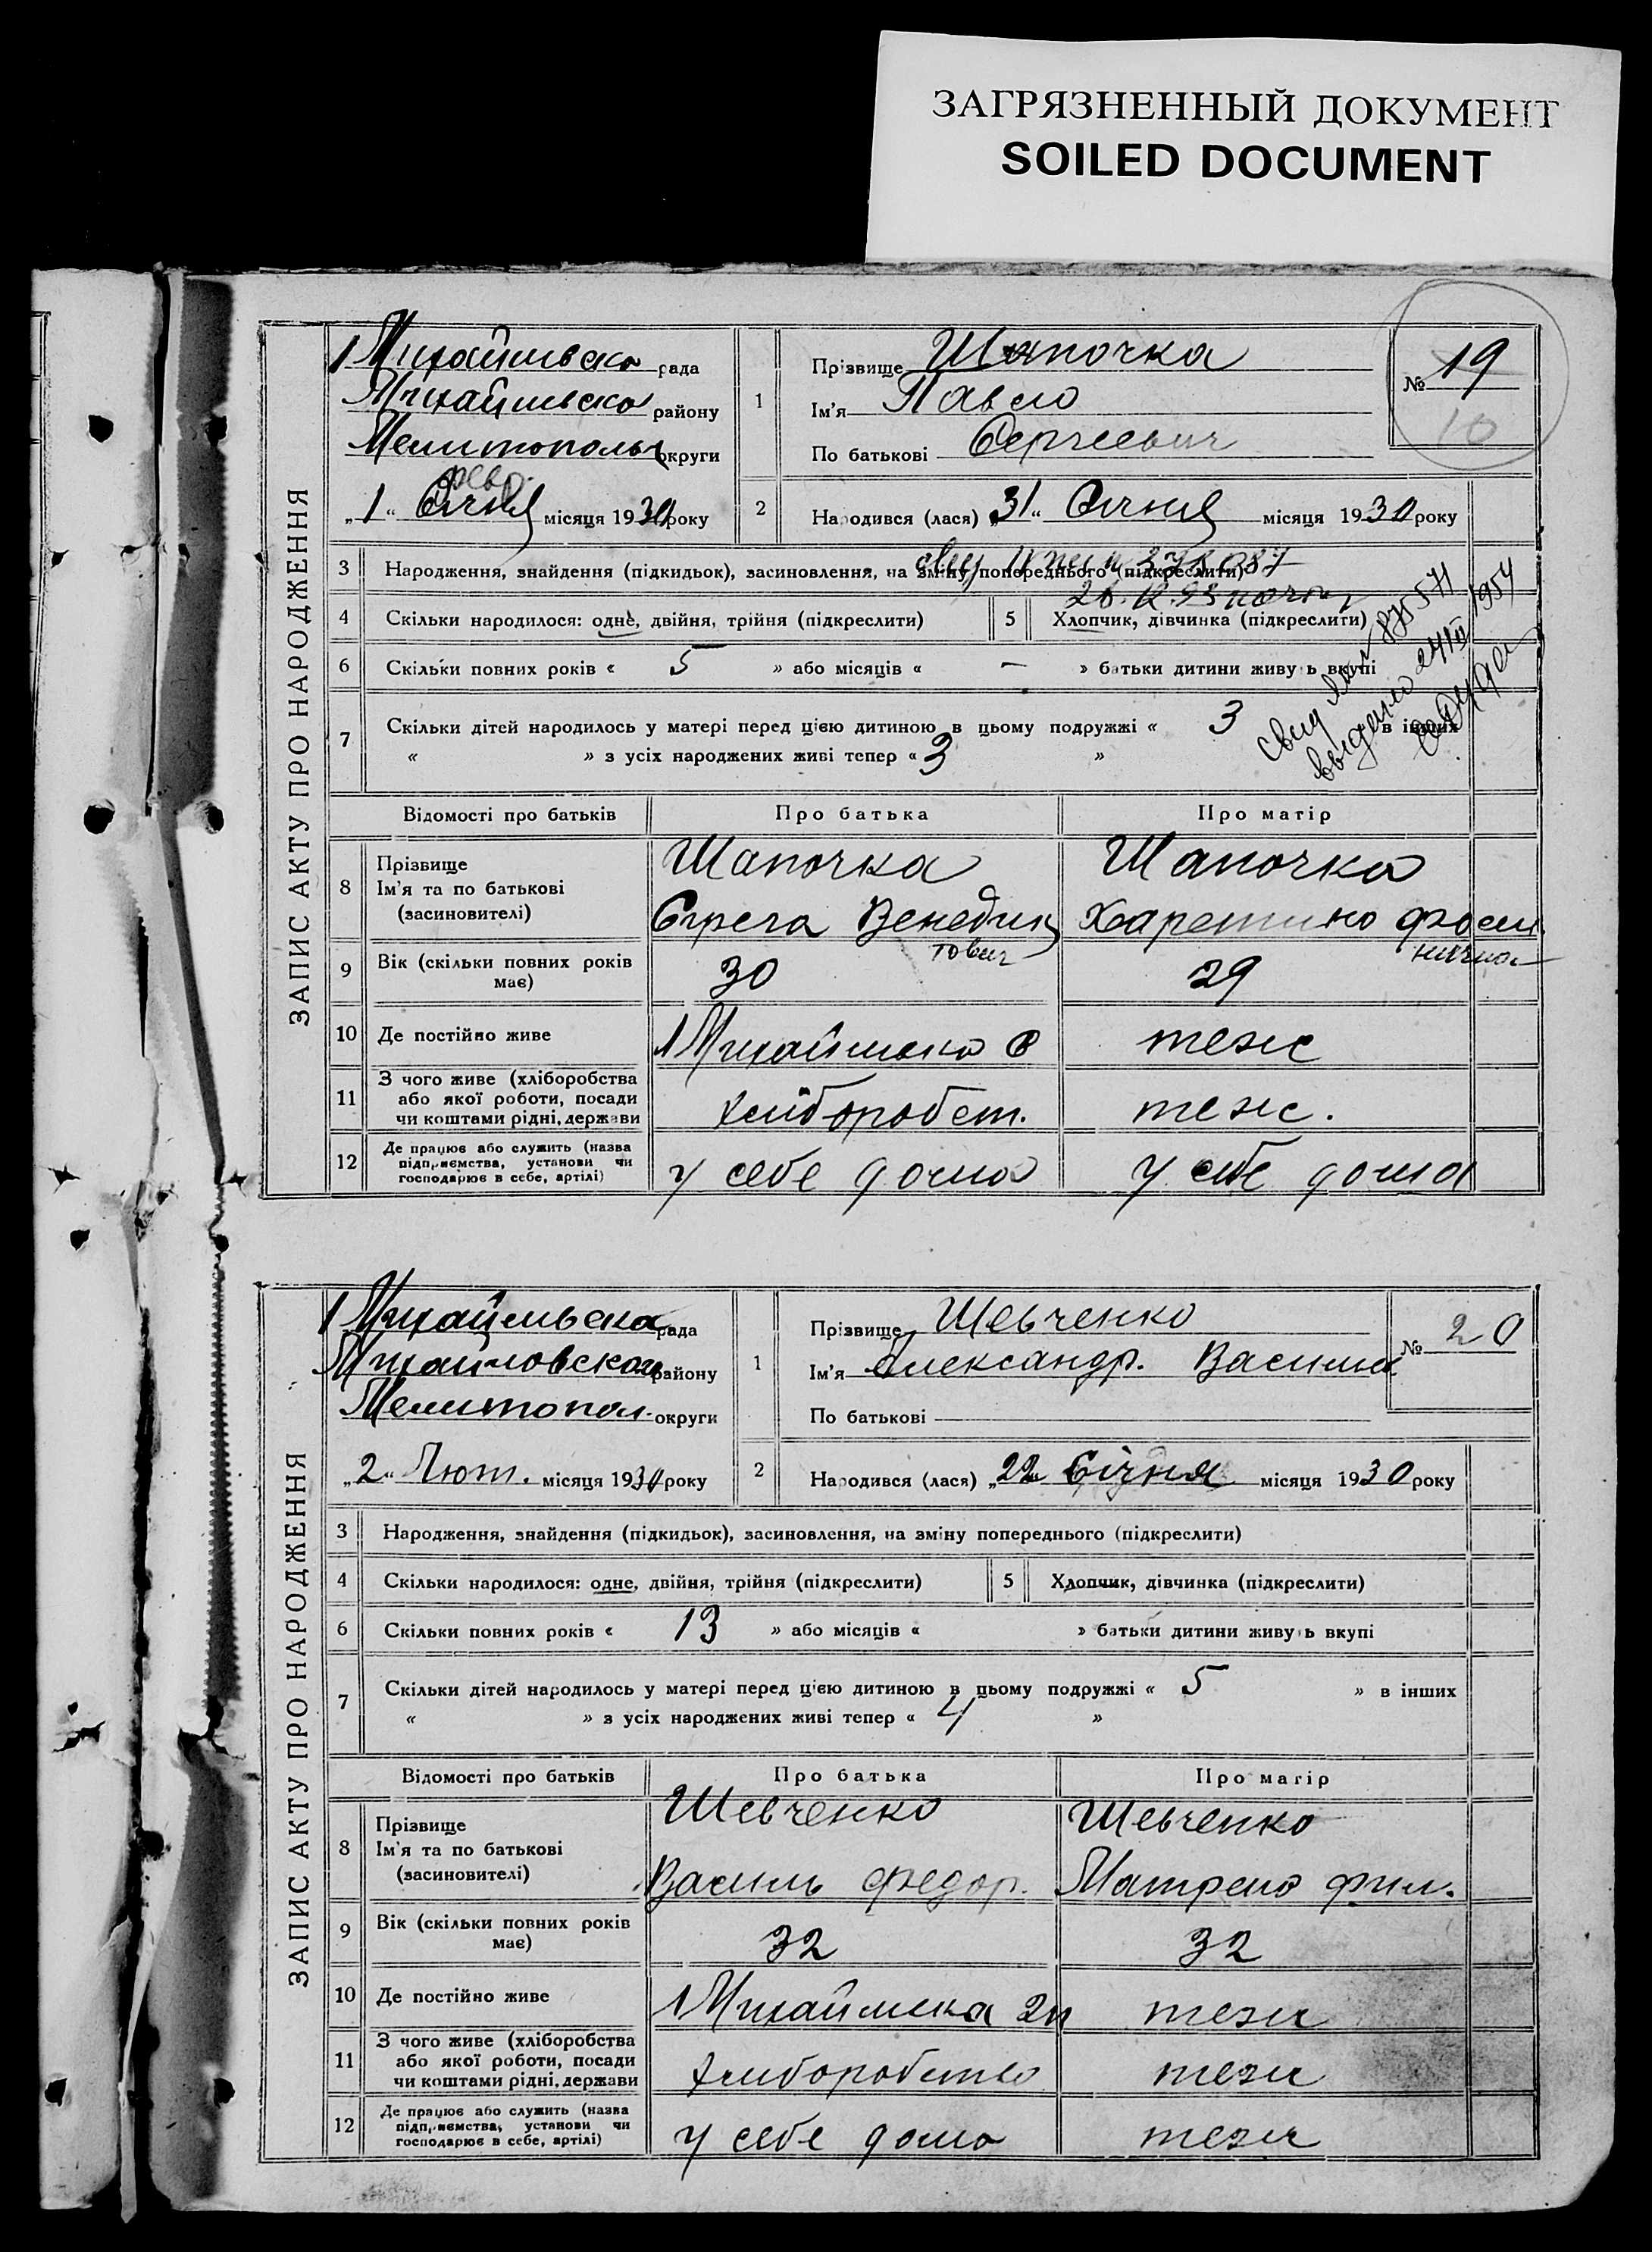 ЗАГРЯЗНЕННЫЙ ДОКУМЕНТ
SOILED DOCUMENT
ЗАПИС АКТУ ПРО НАРОДЖЕННЯ
Михайлівська рада
Михайлівська району
Мелитопольс округи
февр.
„1“ Січня місяця 1930 року
1
Прізвище Шапочка
Ім'я Павло
По батькові Сергеевич
№ 19
10
2
Народився (лася) „31“ Січня місяця 1930 року
3 Народження, знайдення (підкидьок), засиновлення, на зміну попереднього (підкреслити)
4 Скільки народилося: одне, двійня, трійня (підкреслити)
5 Хлопчик, дівчинка (підкреслити)
6 Скільки повних років « 5 » або місяців « — » батьки дитини живуть вкупі
свид
875571
видано
1954
7 Скільки дітей народилось у матері перед цією дитиною в цьому подружжі « 3 в інших
« » з усіх народжених живі тепер « 3 »
Відомості про батьків Про батька Про матір
8 Прізвище Ім'я та по батькові (засновителі)
Шапочка Шапочка
Венедиктович
9 Вік (скільки повних років має) 30 29
10 Де постійно живе Михайлівка теж
11 З чого живе (хліборобства або якої роботи, посади чи коштами рідні, держави хліборобст. теж.
12 Де працює або служить (назва підприємства, установи чи господарює в себе, артілі) у себе дома у себе дома
ЗАПИС АКТУ ПРО НАРОДЖЕННЯ
Михайлівська рада
Михайловского району
Мелитопол. округи
„2“ Лют. місяця 1930 року
1
Прізвище Шевченко
Ім'я Александр. Васильев
По батькові
№ 20
2
Народився (лася) „22“ Січня місяця 1930 року
3 Народження, знайдення (підкидьок), засиновлення, на зміну попереднього (підкреслити)
4 Скільки народилося: одне, двійня, трійня (підкреслити)
5 Хлопчик, дівчинка (підкреслити)
6 Скільки повних років « 13 » або місяців « » батьки дитини живуть вкупі
7 Скільки дітей народилось у матері перед цією дитиною в цьому подружжі « 5 » в інших
« » з усіх народжених живі тепер « 4 »
Відомості про батьків Про батька Про матір
8 Прізвище Ім'я та по батькові (засиновителі)
Шевченко Шевченко
Василь Федор. Матрена Фил.
9 Вік (скільки повних років має) 32 32
10 Де постійно живе Михайлівка 2п теж
11 З чого живе (хліборобства або якої роботи, посади чи коштами рідні, держави хліборобство теж
12 Де працює або служить (назва підприємства, установи чи господарює в себе, артілі) у себе дома теж